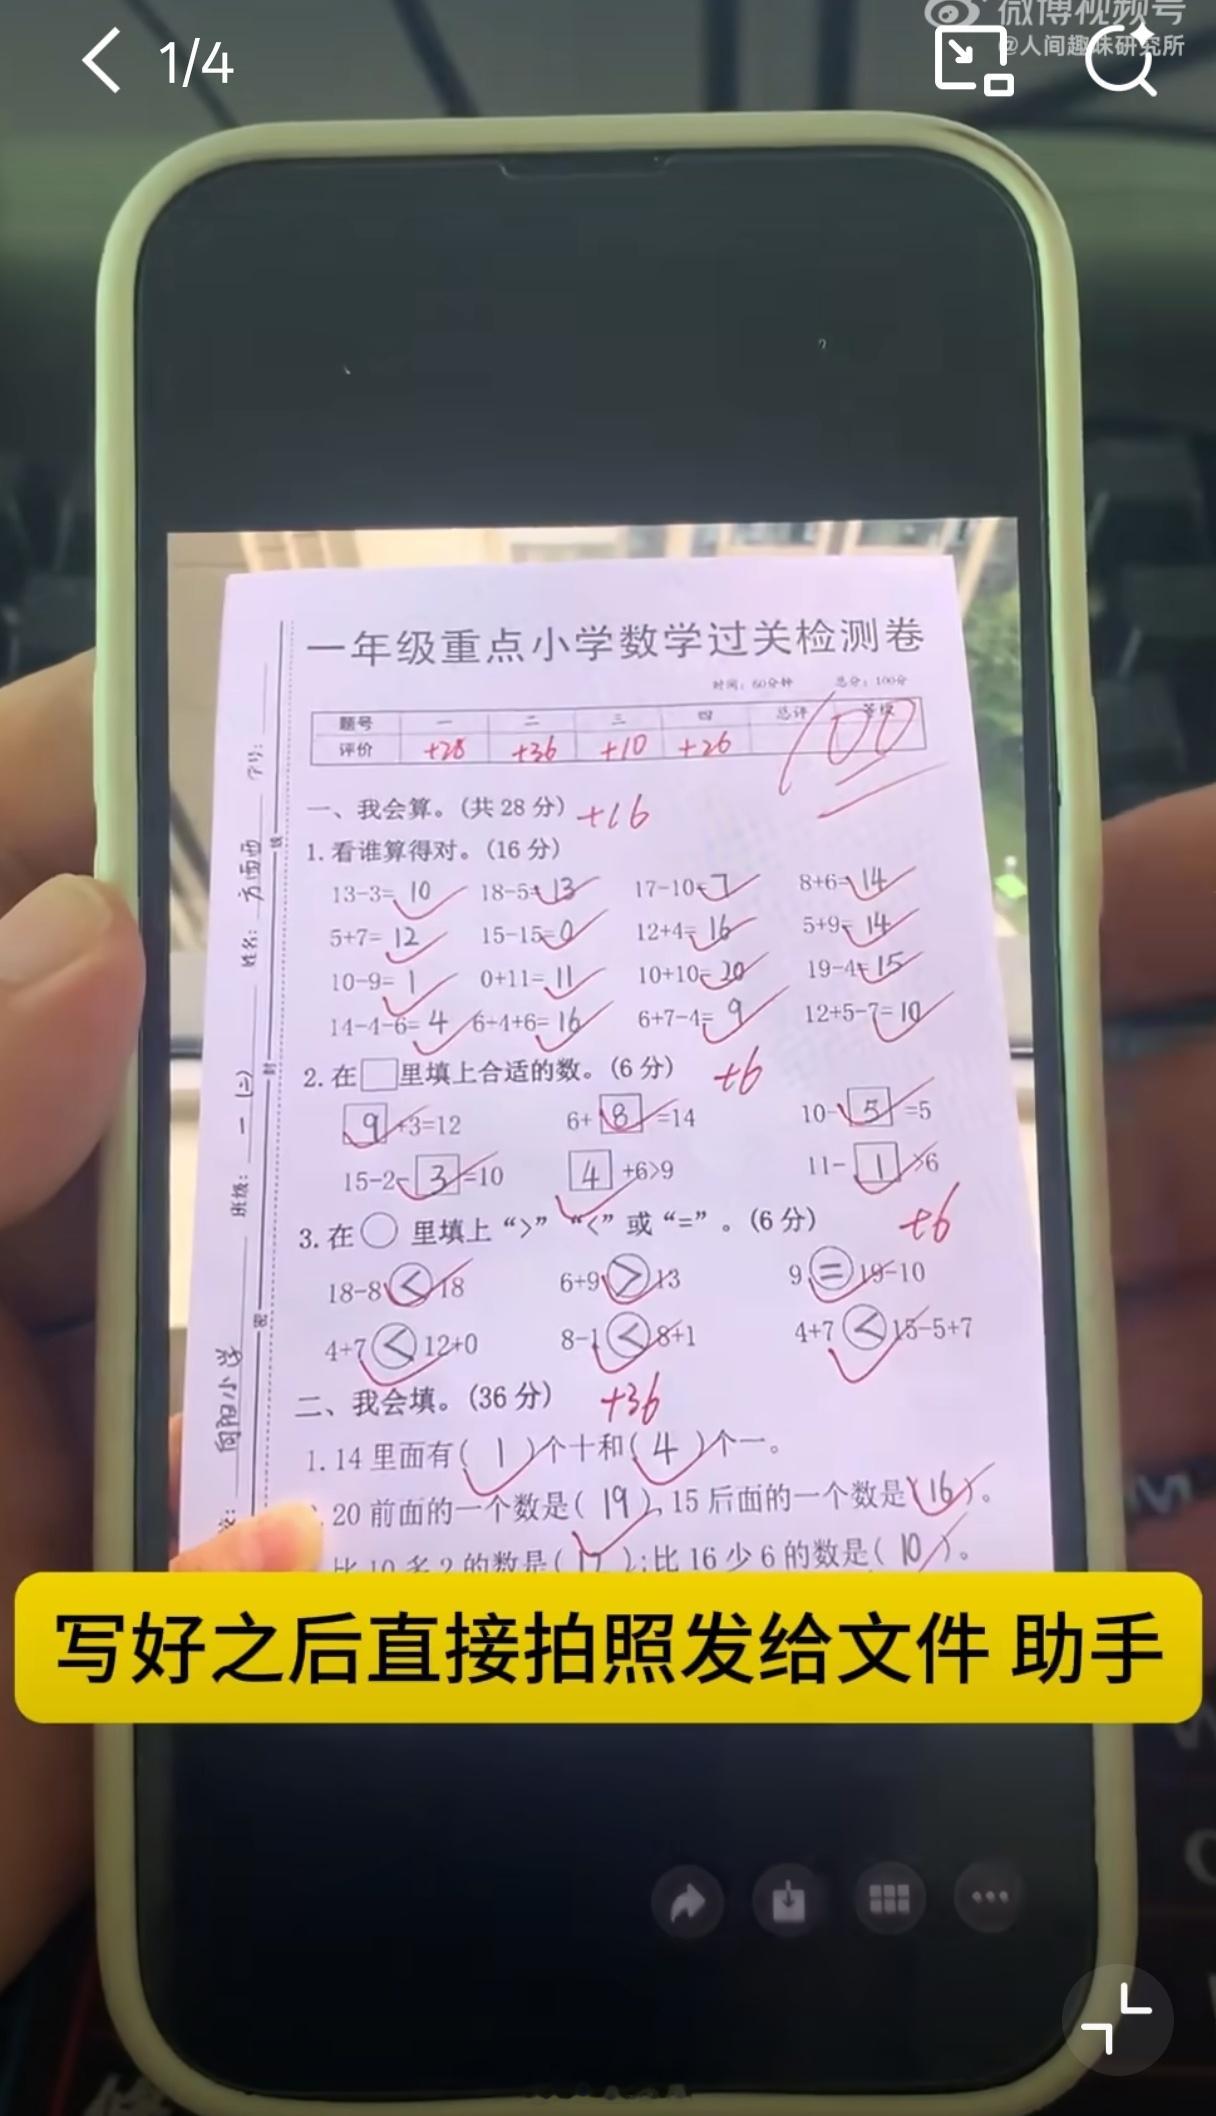 1/4
微博视频号
@人间趣味研究所
一年级重点小学数学过关检测卷
时间：60分钟 总分：100分
题号 一 二 三 四 总评 等级
评价 +28 +36 +10 +26
100
一、我会算。(共 28 分) +16
1.看谁算得对。(16 分)
13-3=10 18-5=13 17-10=7 8+6=14
5+7=12 15-15=0 12+4=16 5+9=14
10-9=1 0+11=11 10+10=20 19-4=15
14-4-6=4 6+4+6=16 6+7-4=9 12+5-7=10
2.在□里填上合适的数。(6 分) +6
9+3=12 6+8=14 10-5=5
15-2-3=10 4+6>9 11-1>6
3.在○里填上“>”“<”或“=”。(6 分) +6
18-8<18 6+9>13 9=19-10
4+7<12+0 8-1<8+1 4+7<15-5+7
二、我会填。(36 分) +36
1.14 里面有(1)个十和(4)个一。
20 前面的一个数是(19),15 后面的一个数是(16)。
比 10 多 2 的数是(12);比 16 少 6 的数是(10)。
学号：
姓名：方西西
班级：一(二)
向阳小学
线
封
密
写好之后直接拍照发给文件 助手